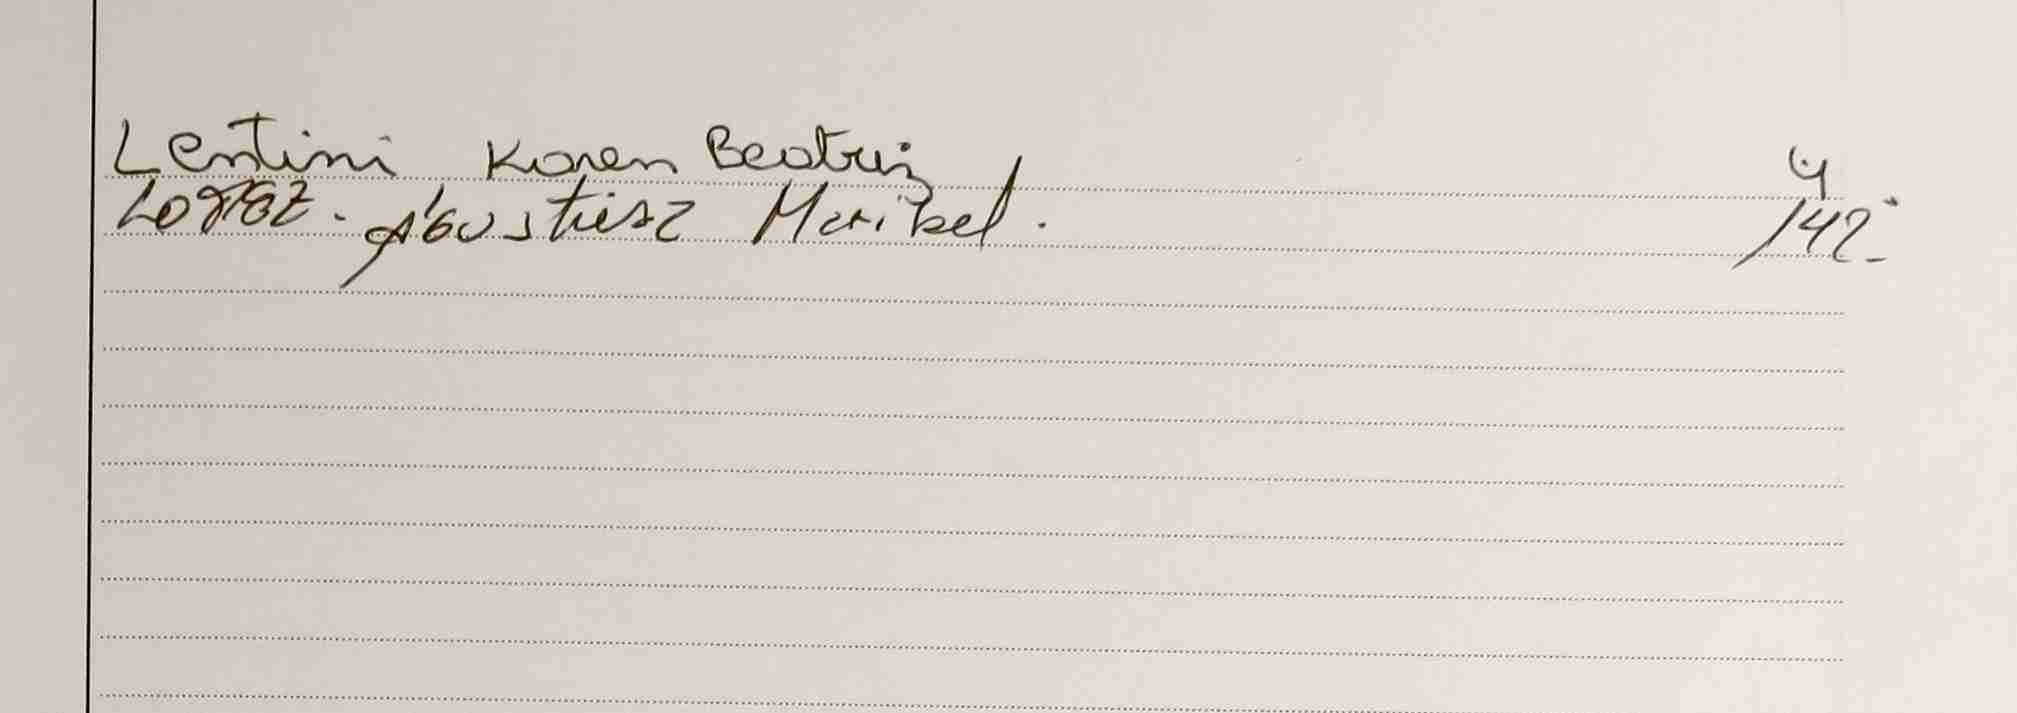 Lentini Karen Beatriz 4
Lopez. Agustina Maribel. 142-